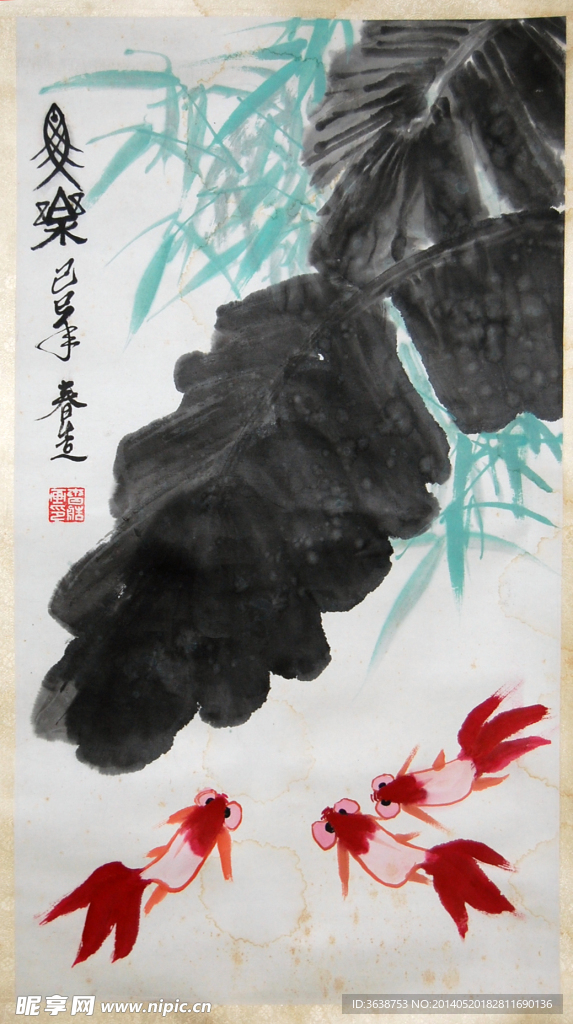 鱼乐
己丑年
春造
昵享网 www.nipic.cn
ID:3638753 NO:20140520182811690136